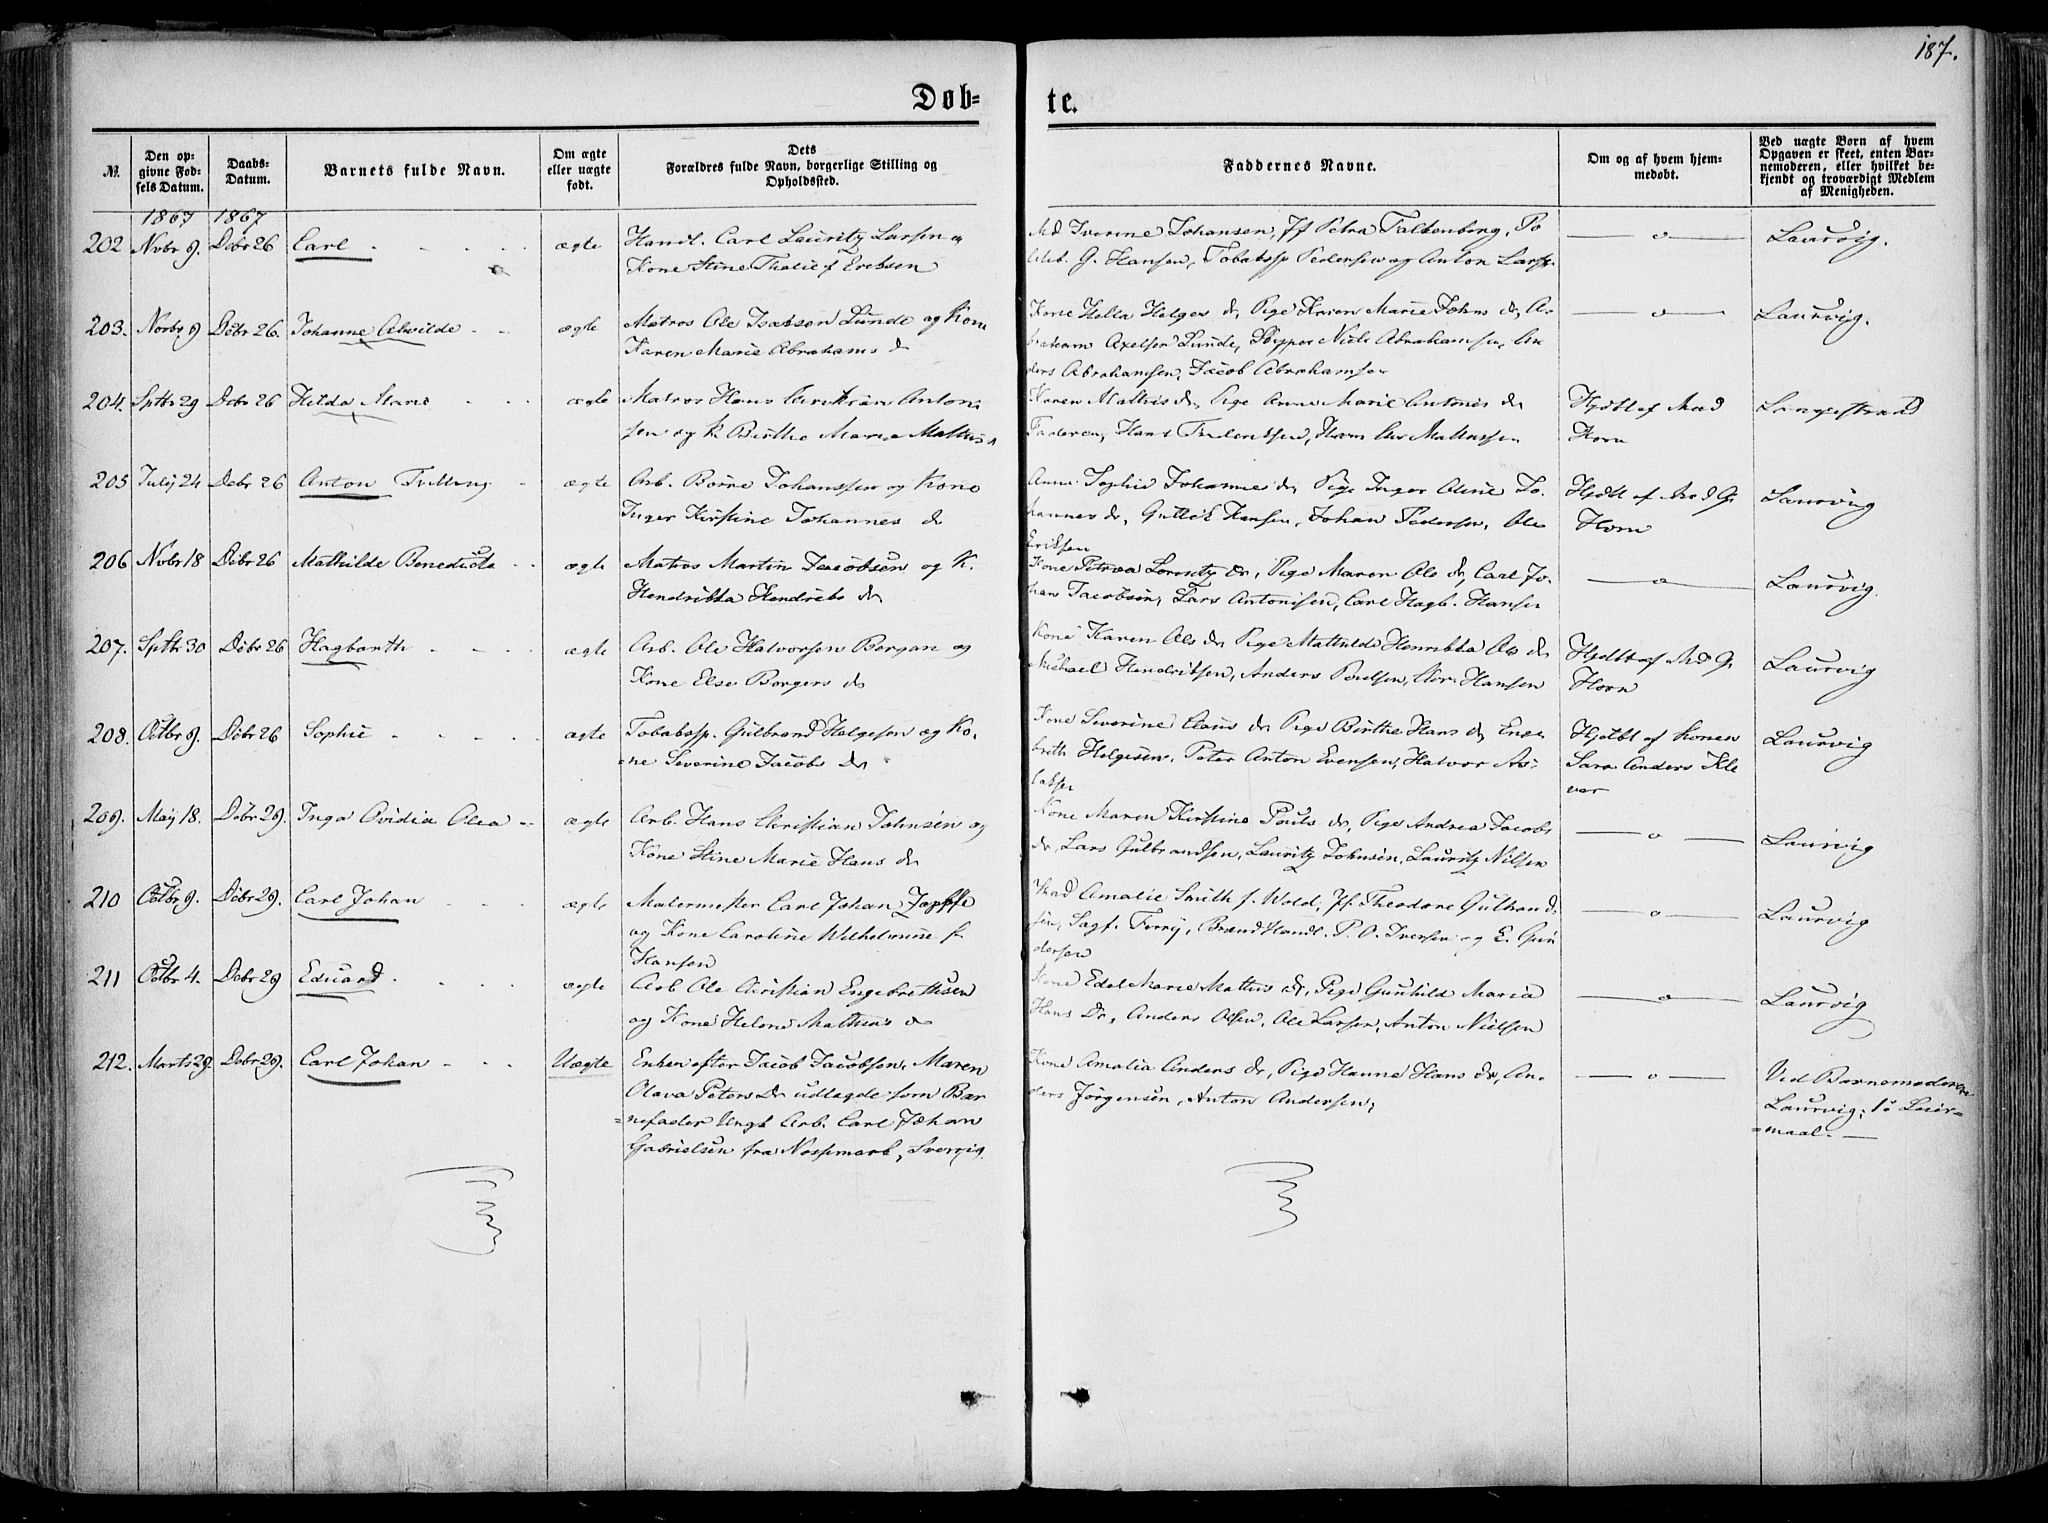 187.
Døb=
te.
№.
Den op=
givne Fød=
sels Datum.
Daabs=
Datum.
Barnets fulde Navn.
Om ægte
eller uægte
født.
Dets
Forældres fulde Navn, borgerlige Stilling og
Opholdssted.
Faddernes Navne.
Om og af hvem hjem=
medøbt.
Ved uægte Børn af hvem
Opgaven er skeet, enten Bar=
nemoderen, eller hvilket be=
kjendt og troværdigt Medlem
af Menigheden.
1867 1867
202 Nvbr 9. Dcbr 26 Carl ægte Handl. Carl Lauritz Larsen og
Kone Stine Thalie f Eriksen
Md Iverine Johansen, Jf Petra Falkenberg,
G. Hansen, Tobaksp Pedersen og Anton Lars
Laurvig.
203. Novbr 9 Dcbr 26. Johanne Alvilde ægte Matros Ole Isaksen Lunde og Kone
Karen Marie Abrahams dr
Kone Helga dr, Pige Karen Marie Johns dr, A-
braham Axelsen Lunde, Skipper Niels Abrahamsen, An
ders Abrahamsen, Jacob Abrahamsen
Laurvig.
204. Sptbr 29 Dcbr 26 Hilda Marie ægte Matros Hans Christian Anton
sen og K. Birthe Marie Mathis
Karen Mathis dr, Pige Anne Marie Antonis dr
Faderen, Hans
Hjdbt af Mad
Horn
Langestrand
205 July 24 Dcbr 26 Anton Tvilling ægte Arb. Børre Johannsen og Kone
Inger Kirstine Johannes dr
Anne Sophie Johannes dr, Pige Inger Oline Jo-
hannes dr, Gullik Hansen, Johan Pedersen, Ole
Eriksen
Hjdbt af Mad G.
Horn
Laurvig
206 Nvbr 18 Dcbr 26 Mathilde Benedicta ægte Matros Martin Jacobsen og K.
Hendrikka Hendriks dr
Kone Petrea Lorentz dr, Pige Maren Ols dr, Carl Jo-
han Jacobsen, Lars Antonisen, Carl Hagb. Hansen
Laurvig.
207. Sptbr 30 Dcbr 26 Hagbarth ægte Arb. Ole Halvorsen Bergan og
Kone Else Borgers dr
Kone Karen Ols dr, Pige Mathilde Henrikka Ols dr
Michael Hendriksen, Anders Poulsen, Hansen
Hjdbt af Md G.
Horn
Laurvig
208. Octbr 9. Dcbr 26 Sophie ægte Tobaksp. Gulbrand Helgesen og Ko-
=ne Severine Jacobs dr
Kone Severine Claus dr, Pige Birthe Hans dr, Enge
breth Helgesen, Peter Anton Evensen, Halvor As-
laksen
Hjdbt af Konen
Sara Anders Kle
ver
Laurvig
209. May 18. Dcbr 29. Inga Ovidia Olea ægte Arb. Hans Christian Johnsen og
Kone Stine Marie Hans dr
Kone Maren Kirstine Pouls dr, Pige Andrea Jacobs
dr, Lars Gulbrandsen, Lauritz Johnsen, Lauritz Nilsen
Laurvig
210 Octbr 9. Dcbr 29. Carl Johan ægte Malermester Carl Johan Zapffe
og Kone Caroline Wilhelmine f.
Hansen
Mad Amalie Smith f. Wold, Jf. Theodore Gulbrand
sen, Sagf. Ferry, Brændhandl. P. O. Iversen og E. Gun
dersen
Laurvig
211 Octbr 4. Dcbr 29 Eduard ægte Arb Ole Christian Engebrethsen
og Kone Helene Mathias dr
Kone Edel Marie Mathis dr, Pige Gunhild Maria
Hans Dr, Anders Olsen, Ole Larsen, Anton Nielsen
Laurvig
212. Marts 29. Dcbr 29. Carl Johan Uægte Enken efter Jacob Jacobsen, Maren
Olava Peters Dr udlagde som Bar
=nefader Ungk Arb. Carl Johan
Gabrielsen fra Nossemark, Sverrig.
Kone Amalia Anders dr, Pige Hanne Hans dr, An-
ders Jørgensen, Anton Andersen,
Ved Barnemoderen
Laurvig; 1e Leier=
=maal.